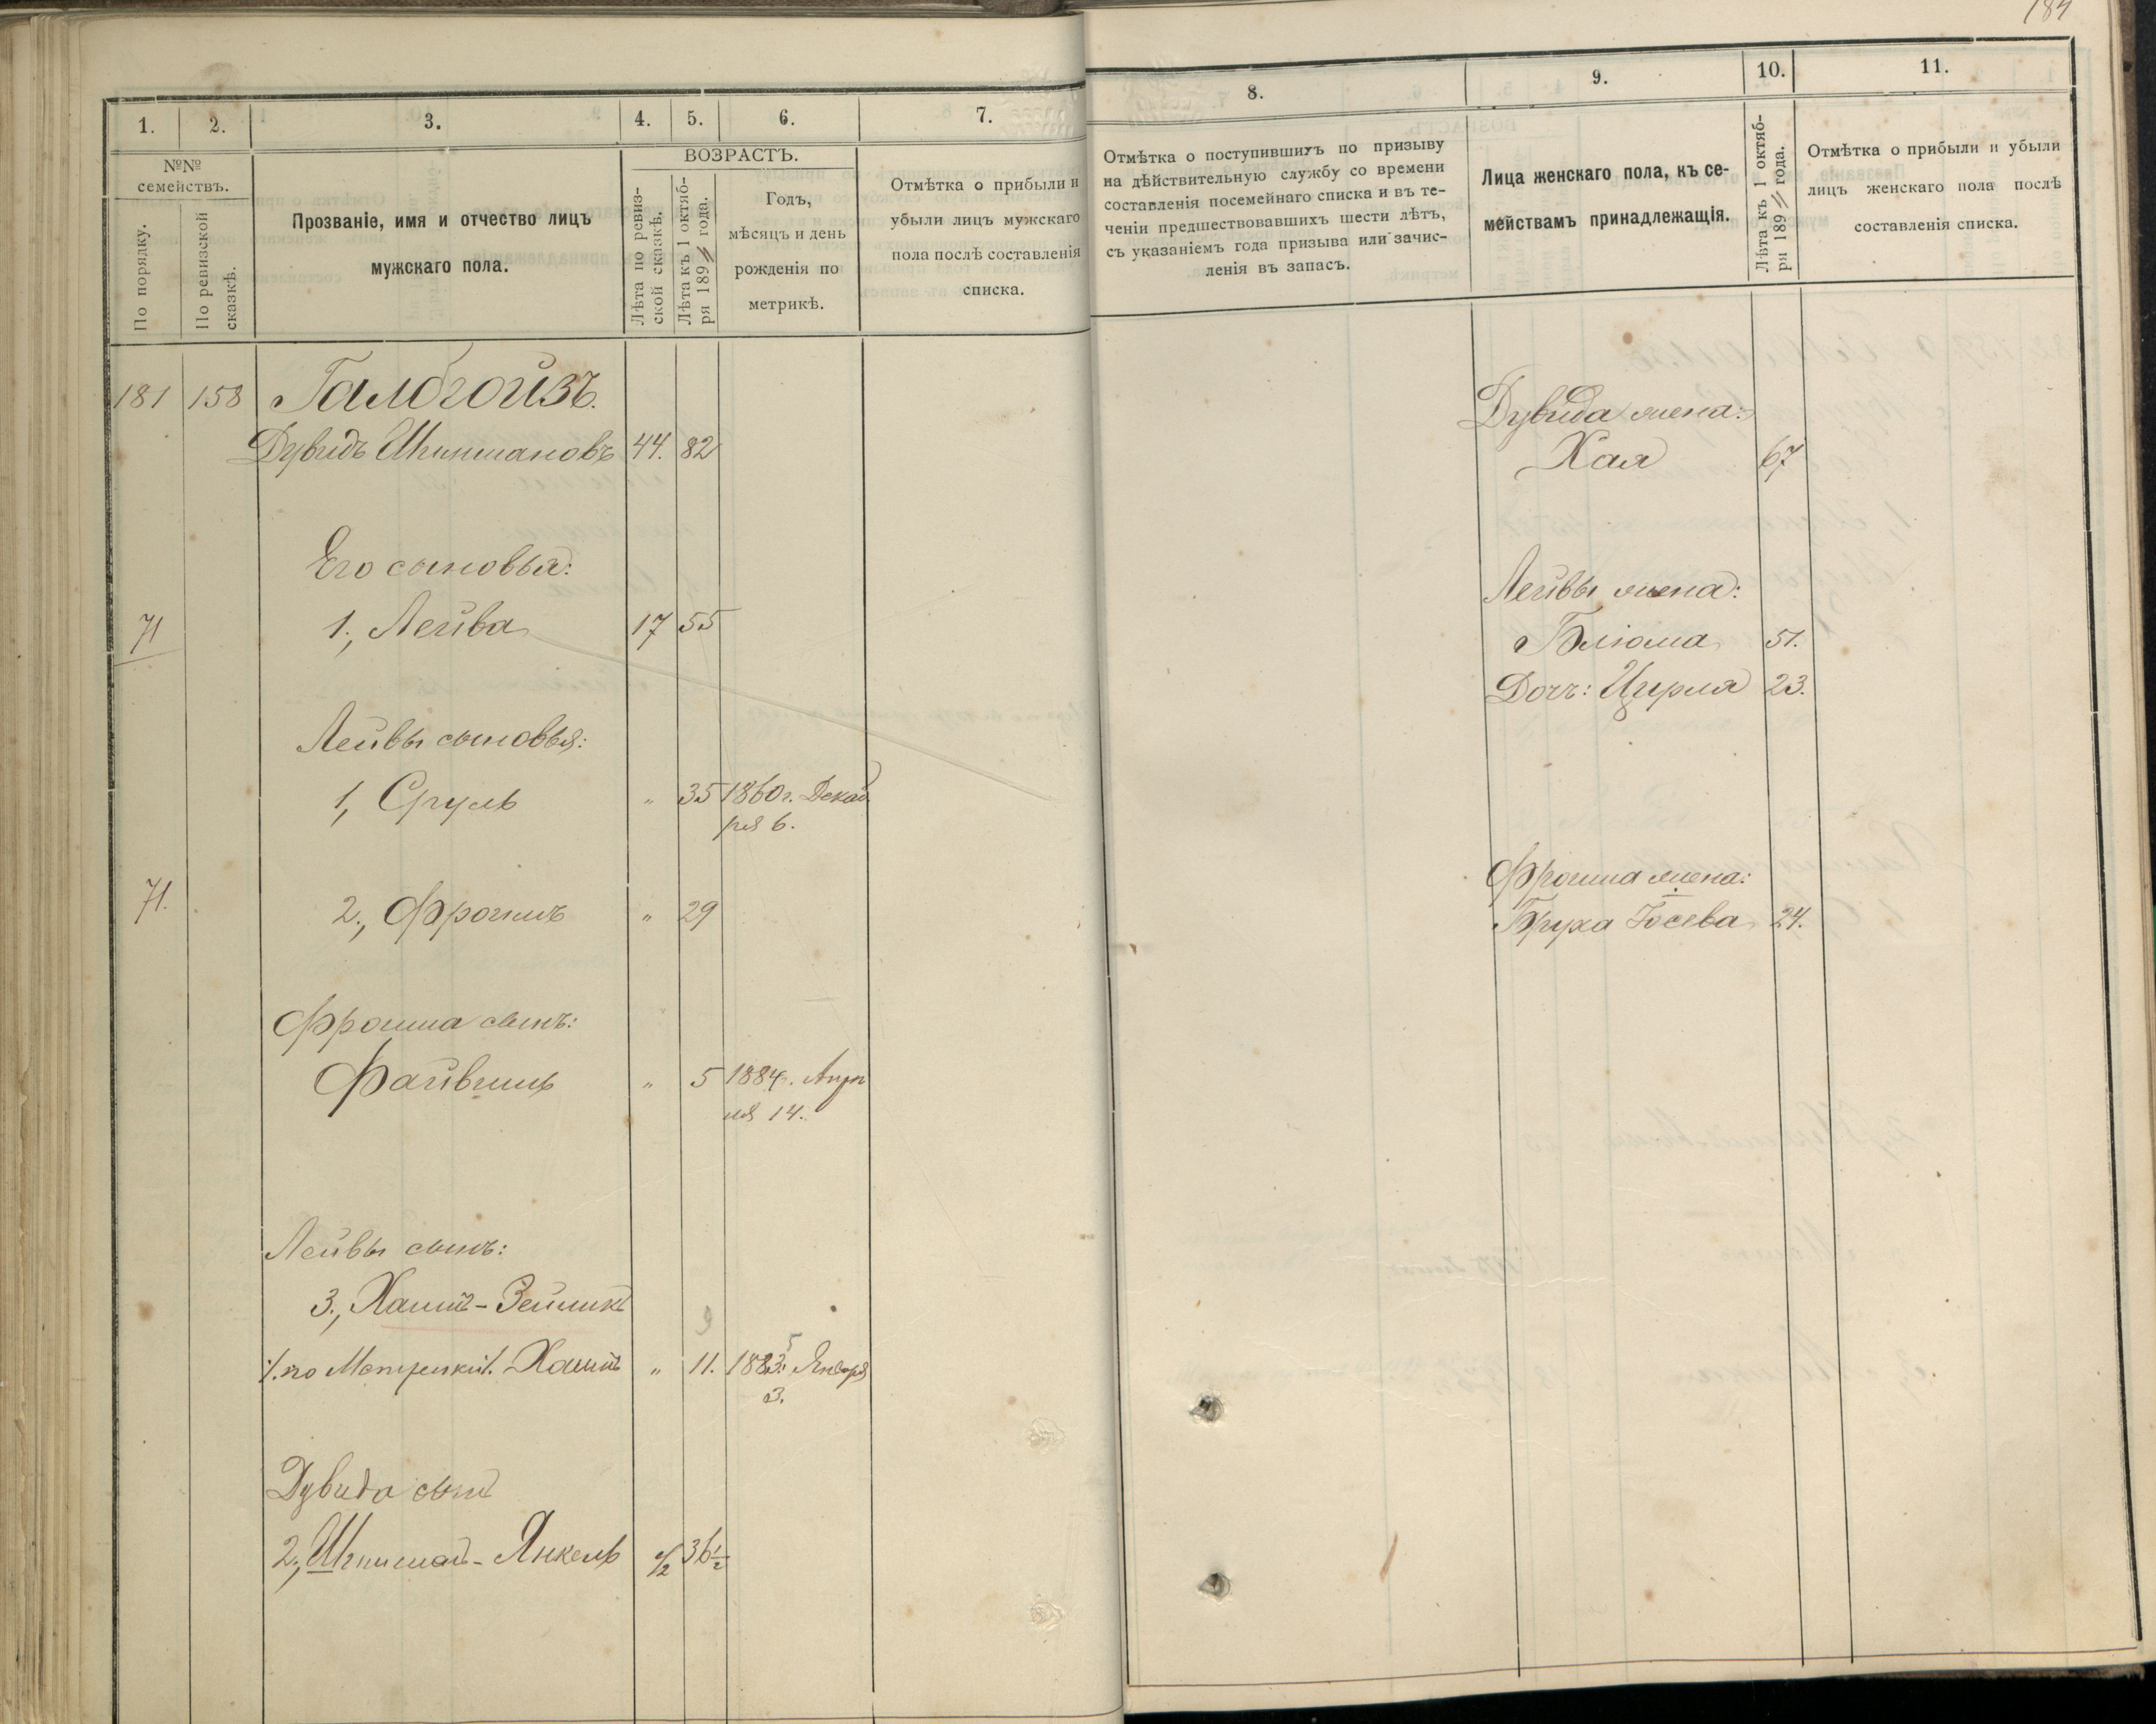 184
1. 2. 3. 4. 5. 6. 7.
№№ семействъ.
По порядку.
По ревизской сказкѣ.
Прозваніе, имя и отчество лицъ
мужскаго пола.
ВОЗРАСТЪ.
Лѣта по ревиз-
ской сказкѣ.
Лѣта къ 1 октяб-
ря 189 года.
Годъ,
мѣсяцъ и день
рожденія по
метрикѣ.
Отмѣтка о прибыли и
убыли лицъ мужскаго
пола послѣ составленія
списка.
181 158
Дувидъ 44. 82
Его сыновья:
71 1., Лейва 17 55
Лейвы сыновья:
1, Сруль " 35 1860 г. Декаб
ря 6.
71. 2., Фроимъ " 29
Фроима сынъ:
Файвишъ " 5 1884 г. Апрѣ
ля 14.
Лейвы сынъ:
3., Хаимъ-Зейликъ
9
по Метрики Хаимъ " 11. 1883 5 Января
3.
Дувида сынъ
2., Янкель 1/2 36 1/2
8. 9. 10. 11.
Отмѣтка о поступившихъ по призыву
на дѣйствительную службу со времени
составленія посемейнаго списка и въ те-
ченіи предшествовавшихъ шести лѣтъ,
съ указаніемъ года призыва или зачис-
ленія въ запасъ.
Лица женскаго пола, къ се-
мействамъ принадлежащія.
Лѣта къ 1 октяб-
ря 189 года.
Отмѣтка о прибыли и убыли
лицъ женскаго пола послѣ
составленія списка.
Дувида жена:
Хая 67
Лейвы жена:
Блюма 51.
Дочь: Цирля 23.
Фроима жена:
Бруха Іосева 24.